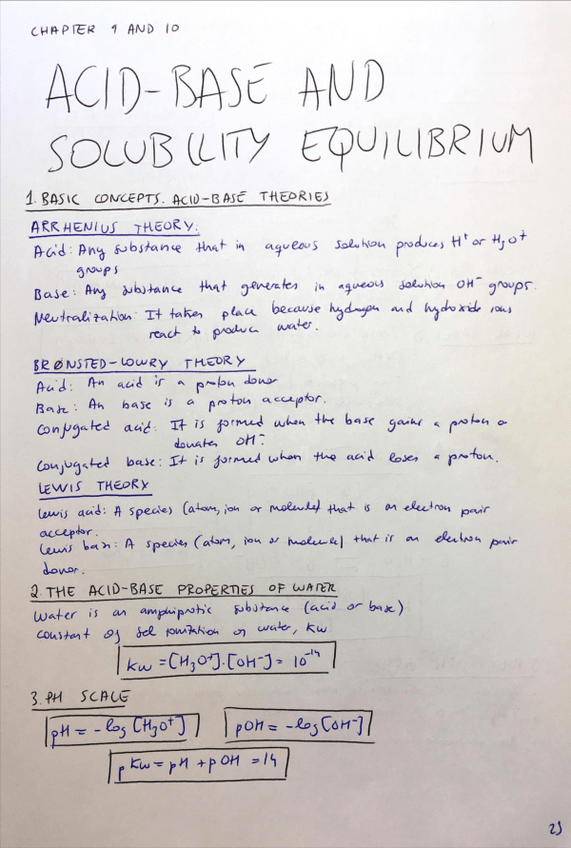 CHAPTER 9 AND 10
ACID-BASE AND
SOLUBILITY EQUILIBRIUM
1. BASIC CONCEPTS. ACID-BASE THEORIES
ARRHENIUS THEORY:
Acid: Any substance that in aqueous solution produces H⁺ or H₃O⁺
groups
Base: Any substance that generates in aqueous solution OH⁻ groups.
Neutralization: It takes place because hydrogen and hydroxide ions
react to produce water.
BRØNSTED-LOWRY THEORY
Acid: An acid is a proton donor
Base: An base is a proton acceptor.
Conjugated acid: It is formed when the base gains a proton o
donates OH⁻
Conjugated base: It is formed when the acid loses a proton.
LEWIS THEORY
Lewis acid: A species (atom, ion or molecule) that is an electron pair
acceptor.
Lewis base: A species (atom, ion or molecule) that is an electron pair
donor.
2. THE ACID-BASE PROPERTIES OF WATER
Water is an amphiprotic substance (acid or base)
constant of sel ionization of water, Kw
Kw = [H₃O⁺]·[OH⁻] = 10⁻¹⁴
3. PH SCALE
pH = -log [H₃O⁺] pOH = -log [OH⁻]
pKw = pH + pOH = 14